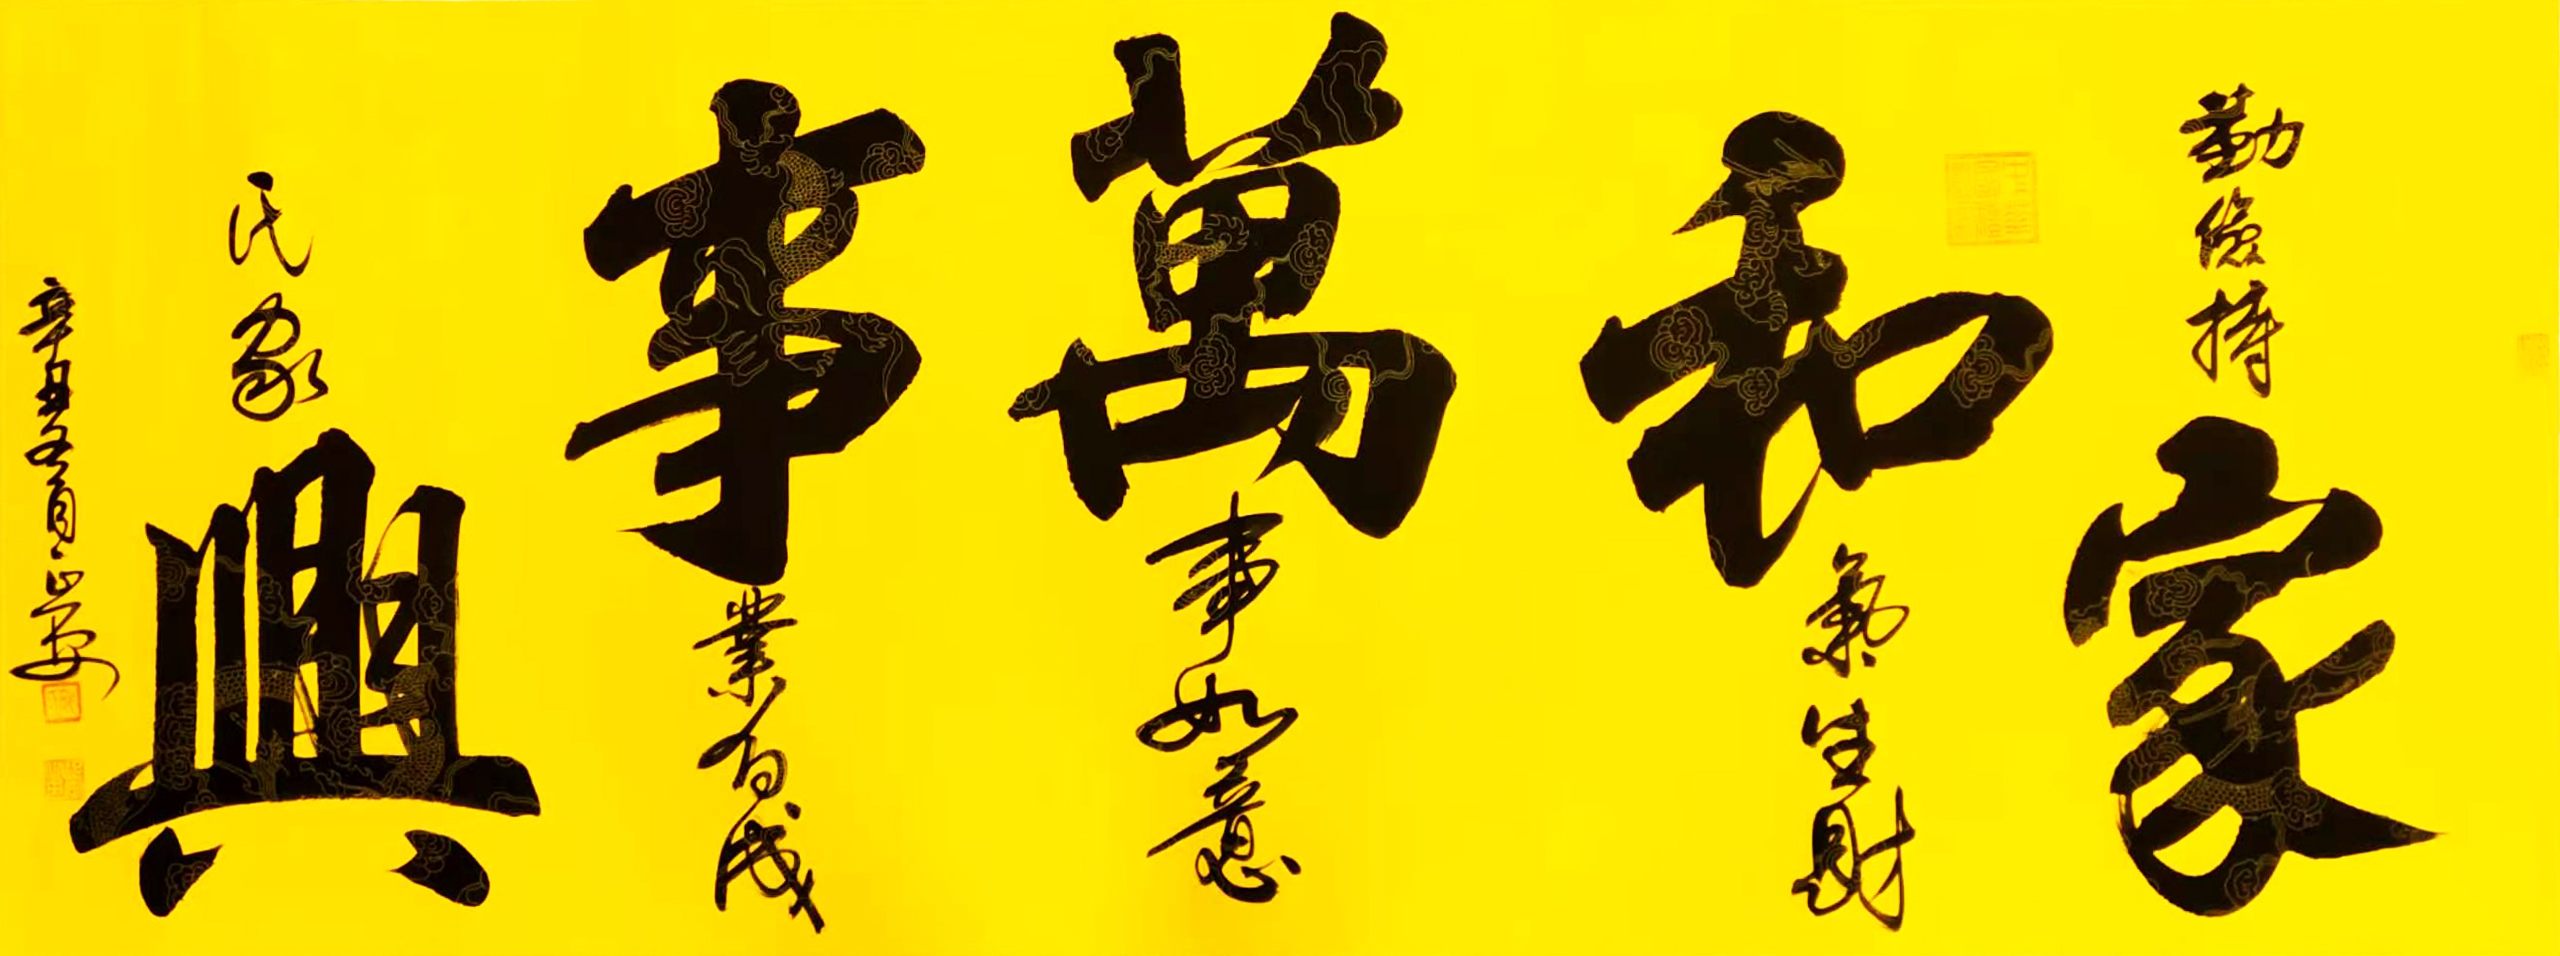 勤儉持家
和氣生財
萬事如意
事業有成
民家興
辛丑冬月正安